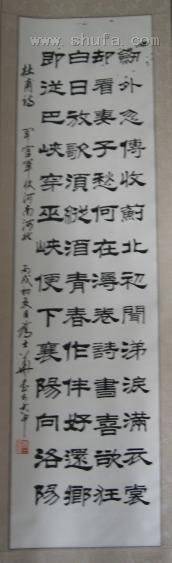 www.shufa.com
劍外忽傳收薊北初聞涕淚滿衣裳
却看妻子愁何在漫卷詩書喜欲狂
白日放歌須縱酒青春作伴好還鄉
即從巴峽穿巫峽便下襄陽向洛陽
杜甫詩 官軍收河南河北 丙戌初夏